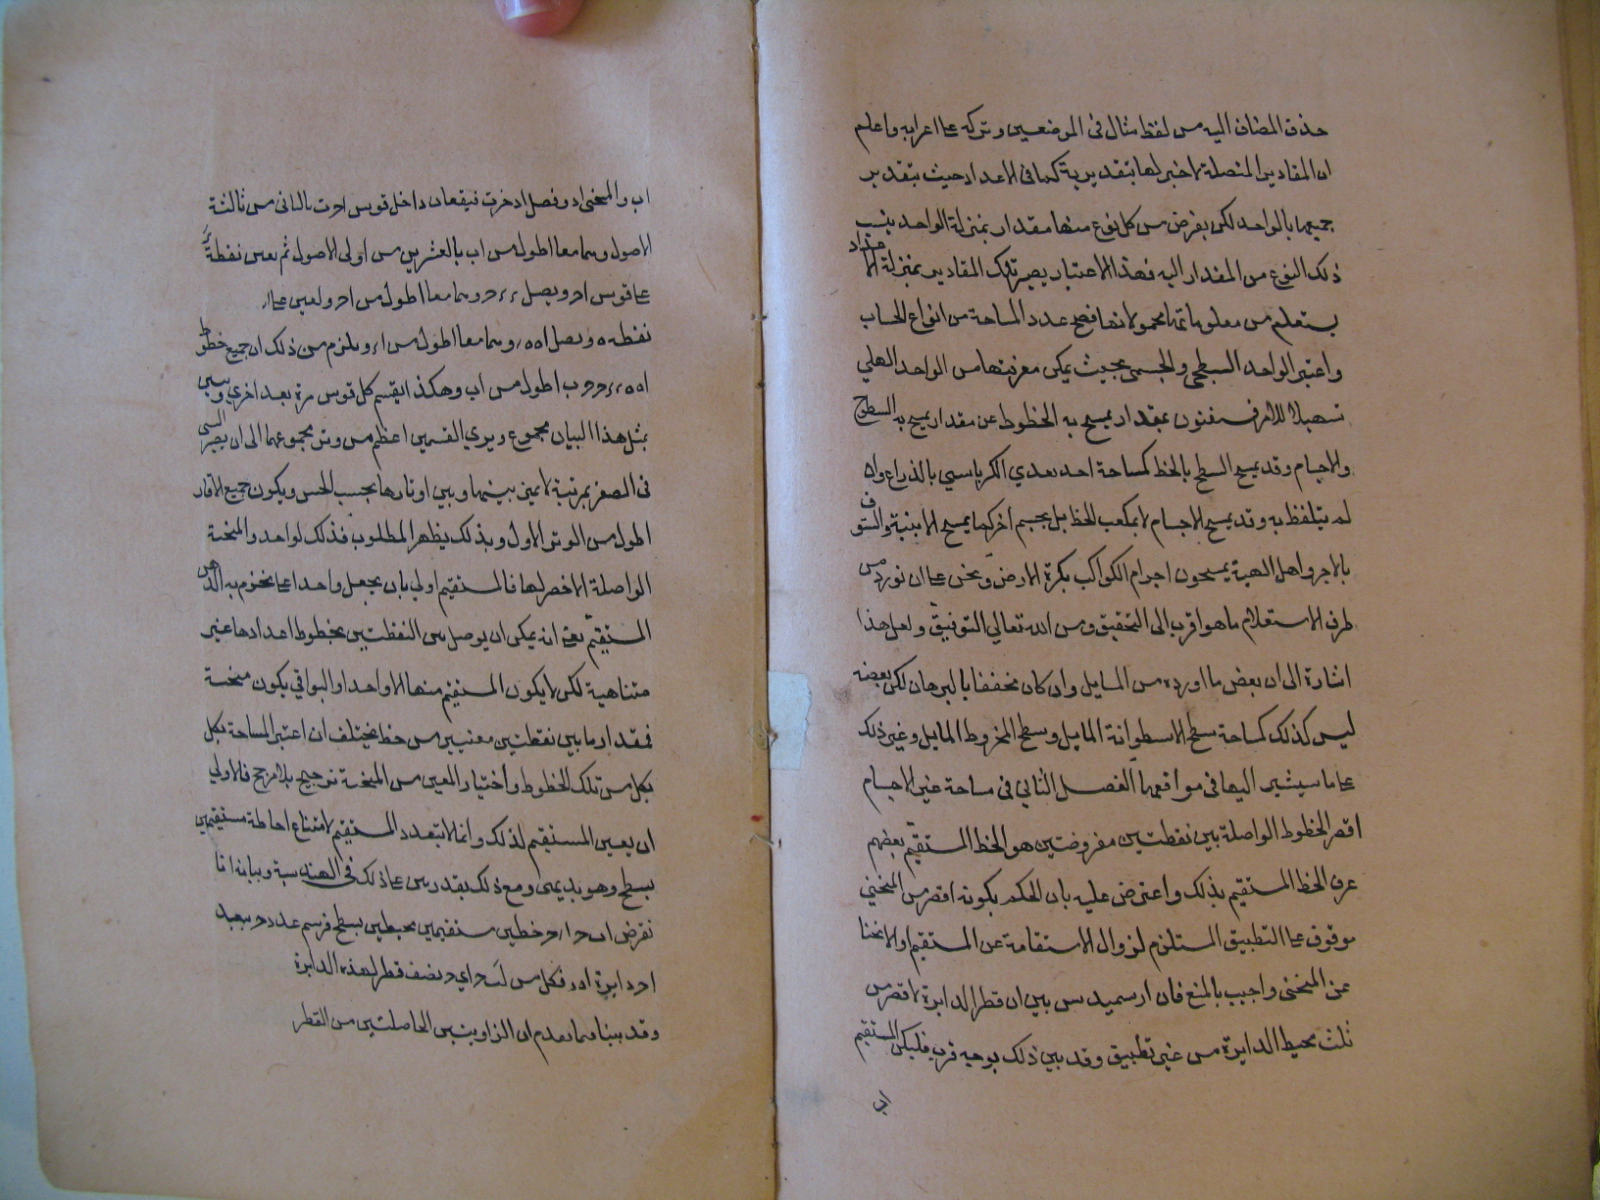 حذف المضاف اليه من لفظ مثال فى الموضعين وتركه على اعرابه واعلم
ان المقادير المتصلة لا خبر لها بتقديرية كما فى الاعداد حيث بتقدير
جميعها بالواحد لكن يفرض من كل نوع منها مقدار بمنزلة الواحد ينسب
ذلك النوع من المقدار اليه فهذا الاعتبار يصير تلك المقادير بمنزلة الاعداد
يستعلم من معلوماتها مجهولاتها فصح عدد المساحة من انواع الحساب
واعتبر الواحد السطحى والجسمى بحيث يمكن معرفتها من الواحد الخطي
تسهيلا للامر فيستغنون بمقدار يمسح به الخطوط عن مقدار يمسح به السطوح
والاجسام وقد يمسح السطح بالخط كمساحة احد بعدي الكرباسي بالذراع وان
لم يتلفظ به وقد يمسح الاجسام لا بمكعب الخط بل بجسم اخر كما يمسح الابنية والسقوف
بالاجر واهل الهيئة يمسحون اجرام الكواكب بكرة الارض ونحن على ان نورد من
طرف الاستعلام ما هو اقرب الى التحقيق ومن الله تعالي التوفيق ولعل هذا
اشارة الى ان بعض ما اورده من المسايل وان كان محققا بالبرهان لكن بعضه
ليس كذلك كمساحة سطح الاسطوانة المايل وسطح المخروط المايل وغير ذلك
على ما سيشير اليها فى مواقعها الفصل الثاني فى مساحة غير الاجسام
اقصر الخطوط الواصلة بين نقطتين مفروضتين هو الخط المستقيم بعضهم
عرف الخط المستقيم بذلك واعترض عليه بان الحكم بكونه اقصر من المنحني
موقوف على التطبيق المستلزم لزوال الاستقامة عن المستقيم او الانحنا
عن المنحنى واجيب بالمنع فان ارسميدس بين ان قطر الدايرة لاقصر من
ثلث محيط الدايرة من غير تطبيق وقد بين ذلك بوجه قريب فليكن المستقيم
اب
اب والمنحنى اد وفصل اد فيقعان داخل قوس بالثانى من ثالثة
الاصول وهما معا اطول من اب بالعشرين من اولى الاصول ثم نعين نقطة
على قوس احد ويصل وهما معا اطول من احد ونعين على
نقطه ه ونصل وهما معا اطول من اء ويلزم من ذلك ان جميع خطوط
اطول من اب وهكذا يقسم كل قوس مرة بعد اخري ويبين
بمثل هذا البيان مجموع وتري القسمين اعظم من وتر مجموعهما الى ان يصير القسي
فى الصغر بمرتبة لا يميز بينها وبين اوتارها بحسب الحس ويكون جميع الاوتار
اطول من الوتر الاول وبذلك يظهر المطلوب فذلك لواحد والمنحنية
الواصلة الاخصر لها فالمستقيم اولى بان يجعل واحدا
المستقيم يعنى انه يمكن ان يوصل بين النقطتين بخطوط اعدادها غير
متناهية لكن لا يكون المستقيم منها الا واحدا والبواقي يكون منحنية
فمقدار ما بين نقطتين معينين من خط يختلف ان اعتبر المساحة بكل
بكل من تلك الخطوط واختيار المعين من المنحنية ترجيح بلا مرجح فالاولى
ان يعين المستقيم لذلك وانما لا يتعدد المستقيم لامتناع احاطة مستقيمين
بسطح وهو بديهى ومع ذلك بقدر من على ذلك فى الهندسية وبيانه انا
نفرض خطين مستقيمين محيطين بسطح فرسم على د ح ببعد
اد دايرة فكل من نصف قطر لهذه الدايرة
وقد بينا فيما تقدم ان الزاويتين الحاصلتين من القطر